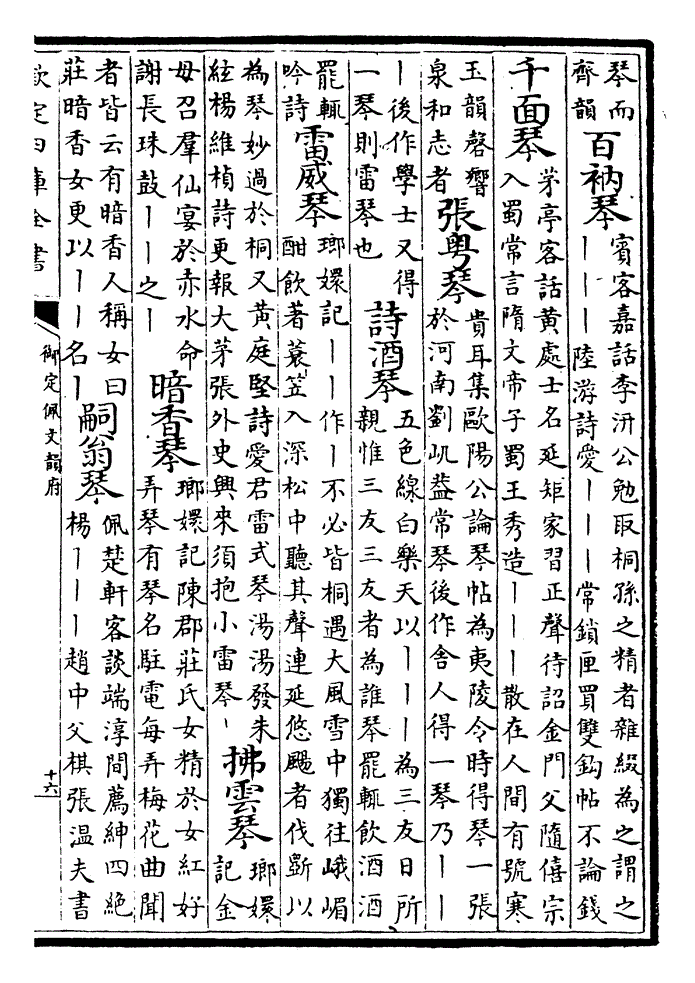 琴而
齊韻
百衲琴
賓客嘉話李汧公勉取桐孫之精者雜綴為之謂之
丨丨丨陸游詩愛丨丨丨常鎖匣買雙鈎帖不論錢
千面琴
茅亭客話黄處士名延矩家習正聲待詔金門父隨僖宗
入蜀常言隋文帝子蜀王秀造丨丨丨散在人間有號寒
玉韻磬響
泉和志者
張粤琴
貴耳集歐陽公論琴帖為夷陵令時得琴一張
於河南劉㞦葢常琴後作舍人得一琴乃丨丨
丨後作學士又得
一琴則雷琴也
詩酒琴
五色線白樂天以丨丨丨為三友日所
親惟三友三友者為誰琴罷輒飲酒酒
罷輒
吟詩
雷威琴
瑯嬛記丨丨作丨不必皆桐遇大風雪中獨往峨嵋
酣飲著蓑笠入深松中聽其聲連延悠颺者伐斵以
為琴妙過於桐又黄庭堅詩愛君雷式琴湯湯發朱
絃楊維楨詩更報大茅張外史興來須抱小雷琴
拂雲琴
瑯嬛
記金
母召羣仙宴於赤水命
謝長珠鼓丨丨之丨
暗香琴
瑯嬛記陳郡莊氏女精於女紅好
弄琴有琴名駐電每弄梅花曲聞
者皆云有暗香人稱女曰
莊暗香女更以丨丨名丨
嗣翁琴
佩楚軒客談端淳間薦紳四絶
楊丨丨丨趙中父棋張温夫書
欽定四庫全書
御定佩文韻府
十六